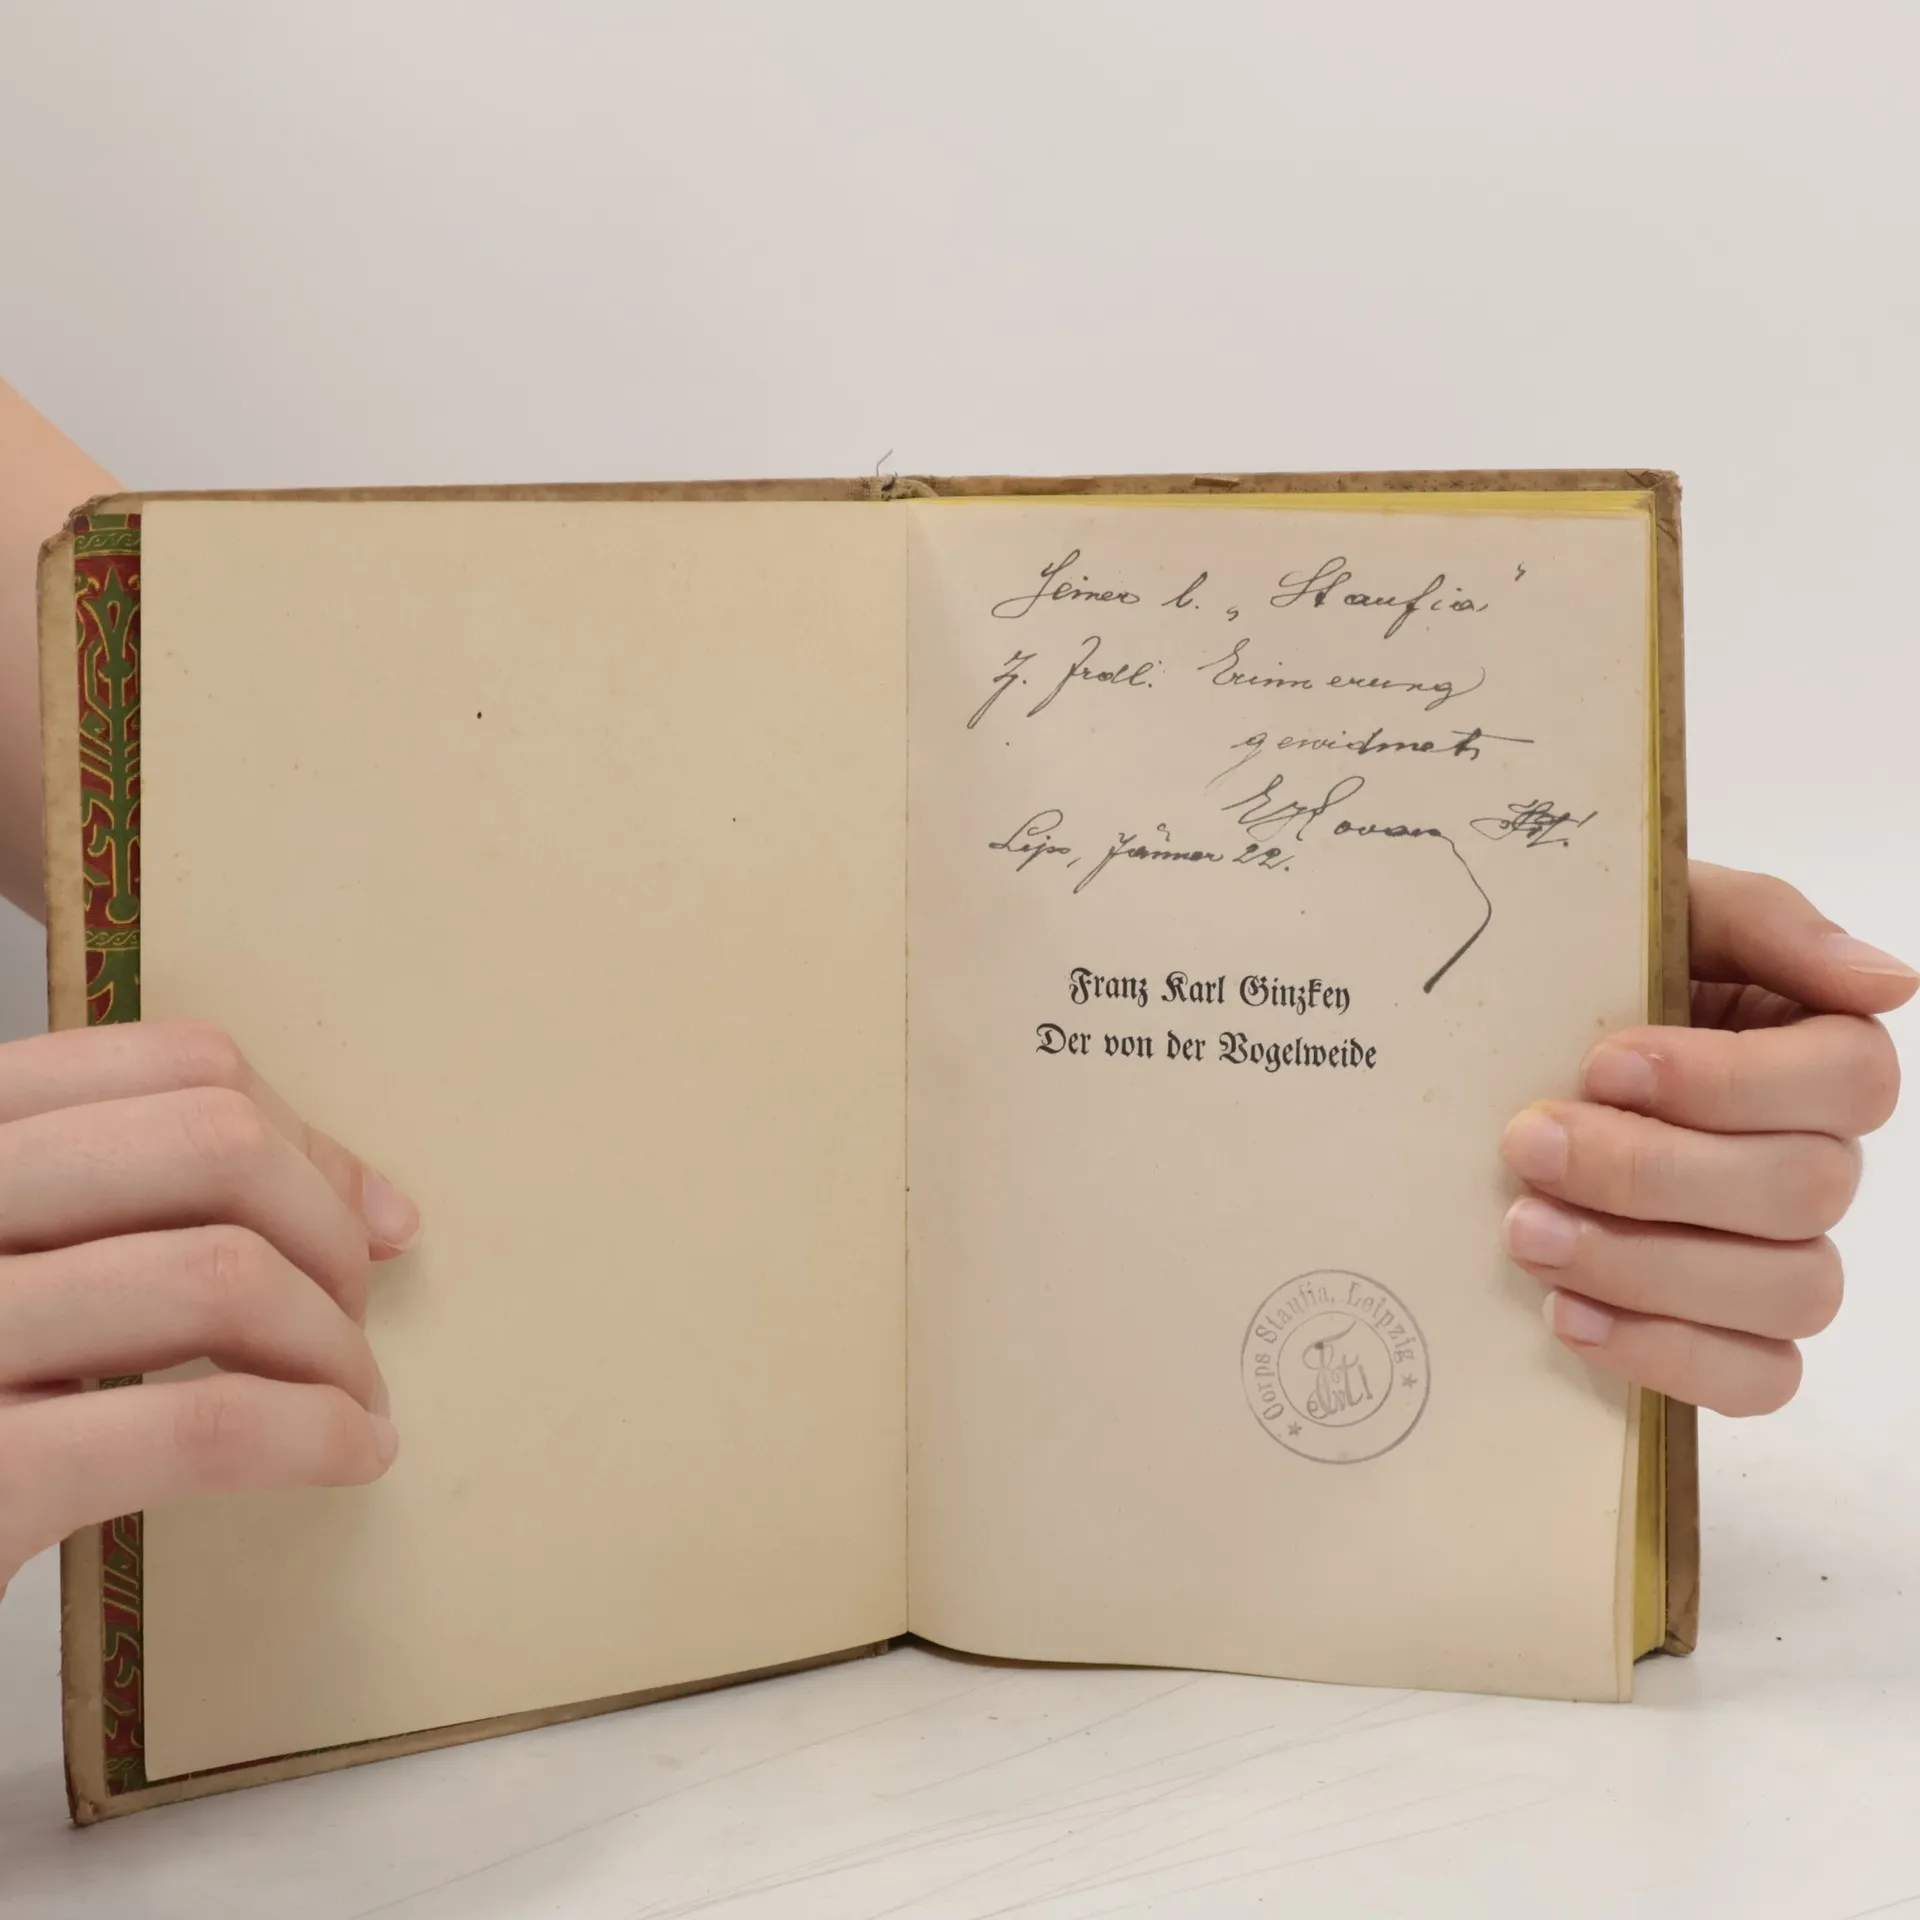 Seiner l. „Staufia"
z. frdl. Erinnerung
gewidmet
Lips, Jänner 22.
Franz Karl Ginzkey
Der von der Vogelweide
* Corps Staufia, Leipzig *